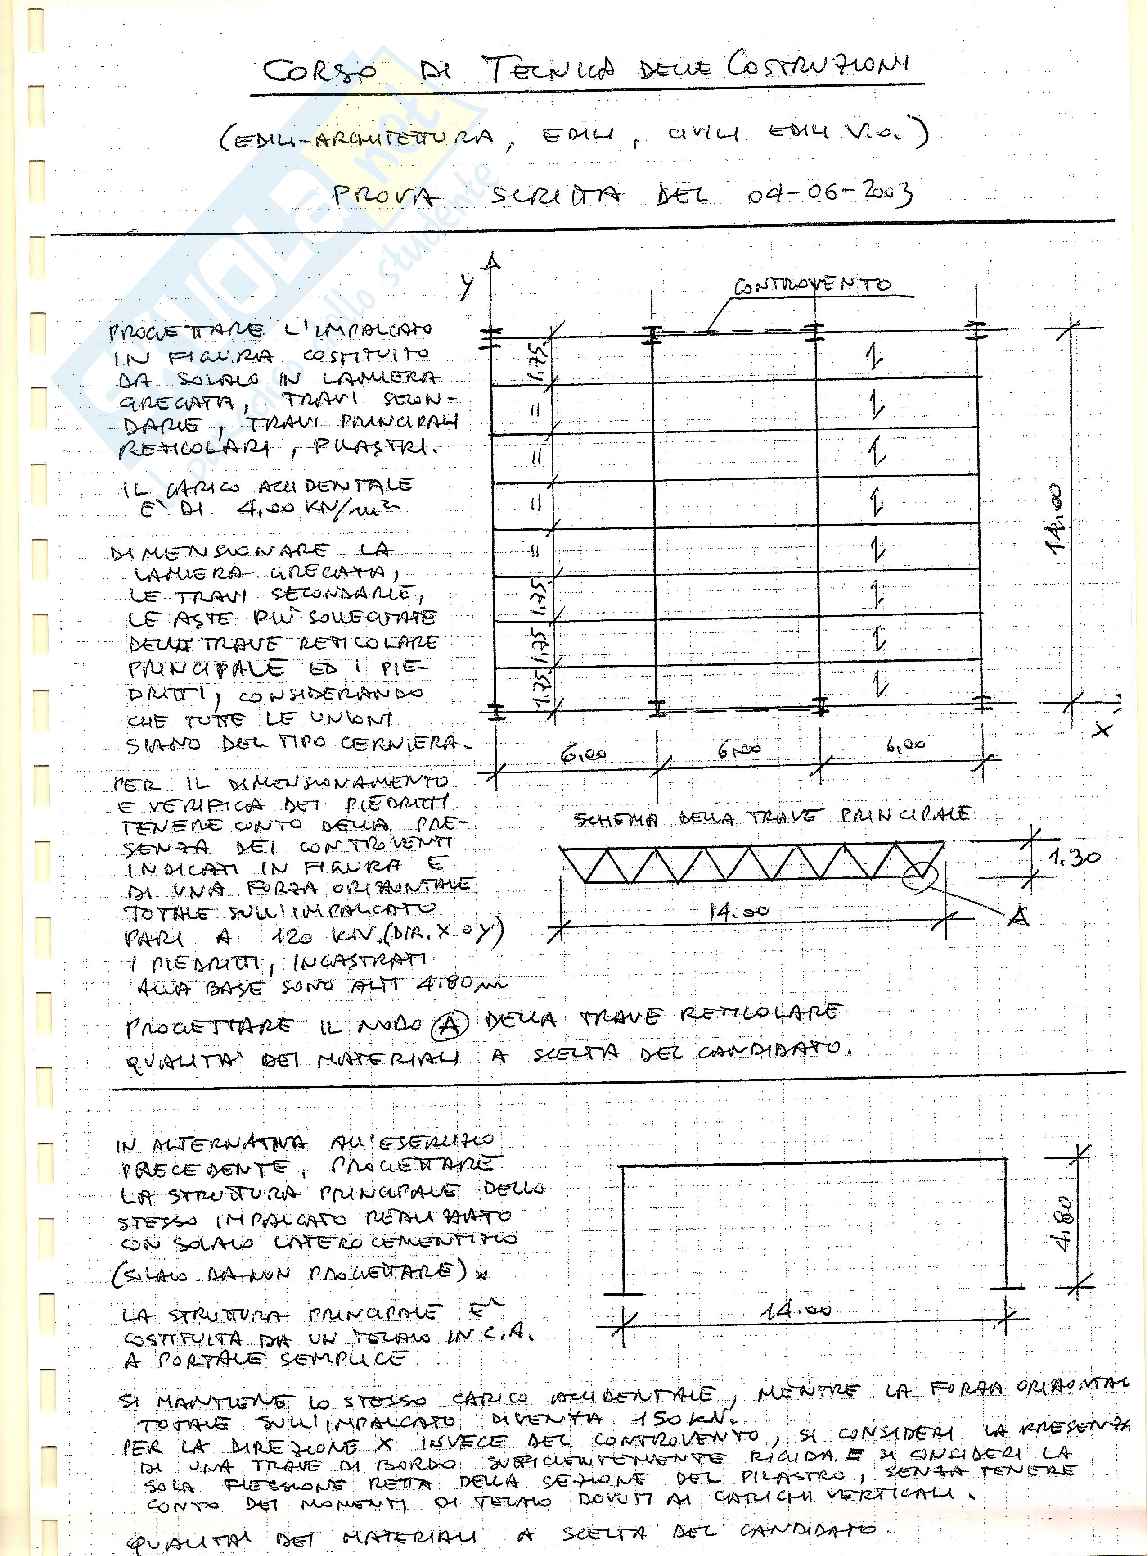 CORSO DI TECNICA DELLE COSTRUZIONI
(EDILI-ARCHITETTURA, EDILI, CIVILI EDILI V.O.)
PROVA SCRITTA DEL 04-06-2003
PROGETTARE L'IMPALCATO
IN FIGURA COSTITUITO
DA SOLAIO IN LAMIERA
GRECATA, TRAVI SECON-
DARIE, TRAVI PRINCIPALI
RETICOLARI, PILASTRI.
IL CARICO ACCIDENTALE
E' DI 4,00 KN/m²
DIMENSIONARE LA
LAMIERA GRECATA,
LE TRAVI SECONDARIE,
LE ASTE PIU' SOLLECITATE
DELLA TRAVE RETICOLARE
PRINCIPALE ED I PIE-
DRITTI, CONSIDERANDO
CHE TUTTE LE UNIONI
SIANO DEL TIPO CERNIERA.
PER IL DIMENSIONAMENTO
E VERIFICA DEI PIEDRITTI
TENERE CONTO DELLA PRE-
SENZA DEI CONTROVENTI
INDICATI IN FIGURA E
DI UNA FORZA ORIZZONTALE
TOTALE SULL'IMPALCATO
PARI A 120 KN. (DIR. X O Y)
I PIEDRITTI, INCASTRATI
ALLA BASE SONO ALTI 4.80 m
PROGETTARE IL NODO A DELLA TRAVE RETICOLARE
QUALITA' DEI MATERIALI A SCELTA DEL CANDIDATO.
y
CONTROVENTO
1.75
=
=
=
=
1.75
1.75
1.75
14.00
x
6,00
6,00
6,00
SCHEMA DELLA TRAVE PRINCIPALE
1.30
14.00
A
IN ALTERNATIVA ALL'ESERCIZIO
PRECEDENTE, PROGETTARE
LA STRUTTURA PRINCIPALE DELLO
STESSO IMPALCATO REALIZZATO
CON SOLAIO LATEROCEMENTIZIO
(SOLAIO DA NON PROGETTARE)
LA STRUTTURA PRINCIPALE E'
COSTITUITA DA UN TELAIO IN C.A.
A PORTALE SEMPLICE
4.80
14.00
SI MANTIENE LO STESSO CARICO ACCIDENTALE, MENTRE LA FORZA ORIZZONTAL
TOTALE SULL'IMPALCATO DIVENTA 150 KN.
PER LA DIREZIONE X INVECE DEL CONTROVENTO, SI CONSIDERI LA PRESENZA
DI UNA TRAVE DI BORDO SUFFICIENTEMENTE RIGIDA E SI CONSIDERI LA
SOLA FLESSIONE RETTA DELLA SEZIONE DEL PILASTRO, SENZA TENERE
CONTO DEI MOMENTI DI TELAIO DOVUTI AI CARICHI VERTICALI.
QUALITA' DEI MATERIALI A SCELTA DEL CANDIDATO.